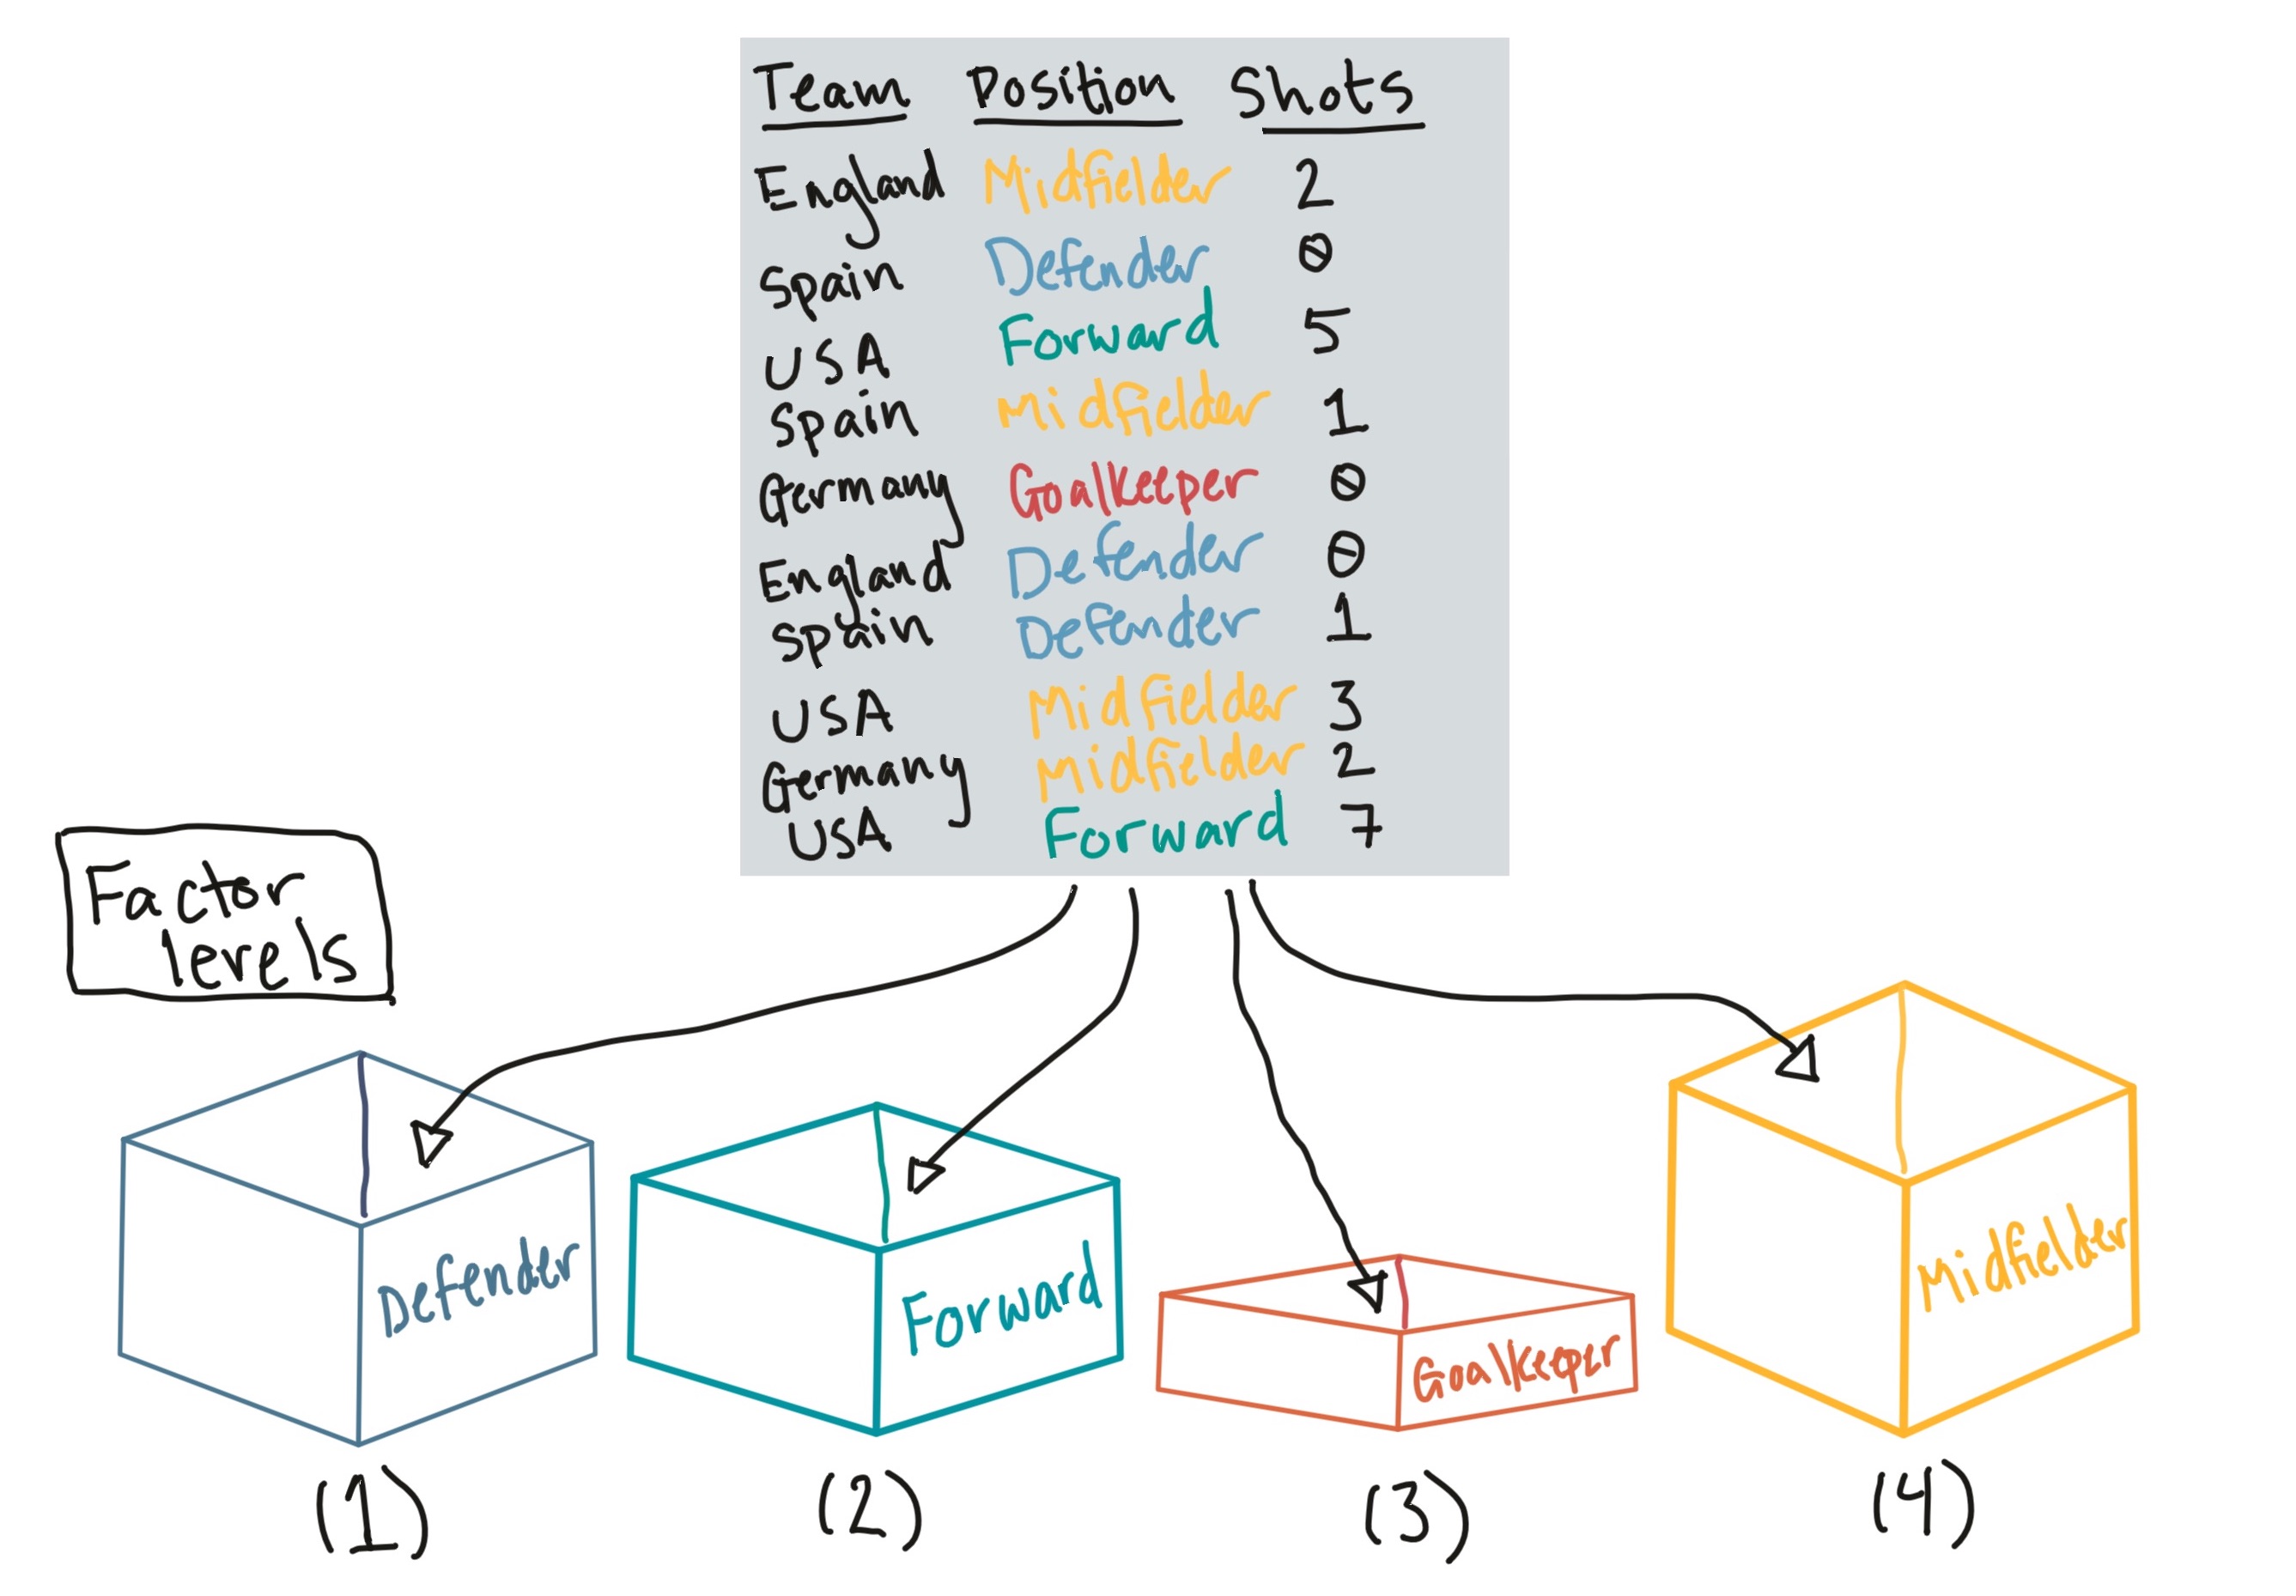 Team Position Shots
England Midfielder 2
Spain Defender 0
USA Forward 5
Spain Midfielder 1
Germany Goalkeeper 0
England Defender 0
Spain Defender 1
USA Midfielder 3
Germany Midfielder 2
USA Forward 7
Factor
levels
Defender
Forward
Goalkeeper
Midfielder
(1) (2) (3) (4)